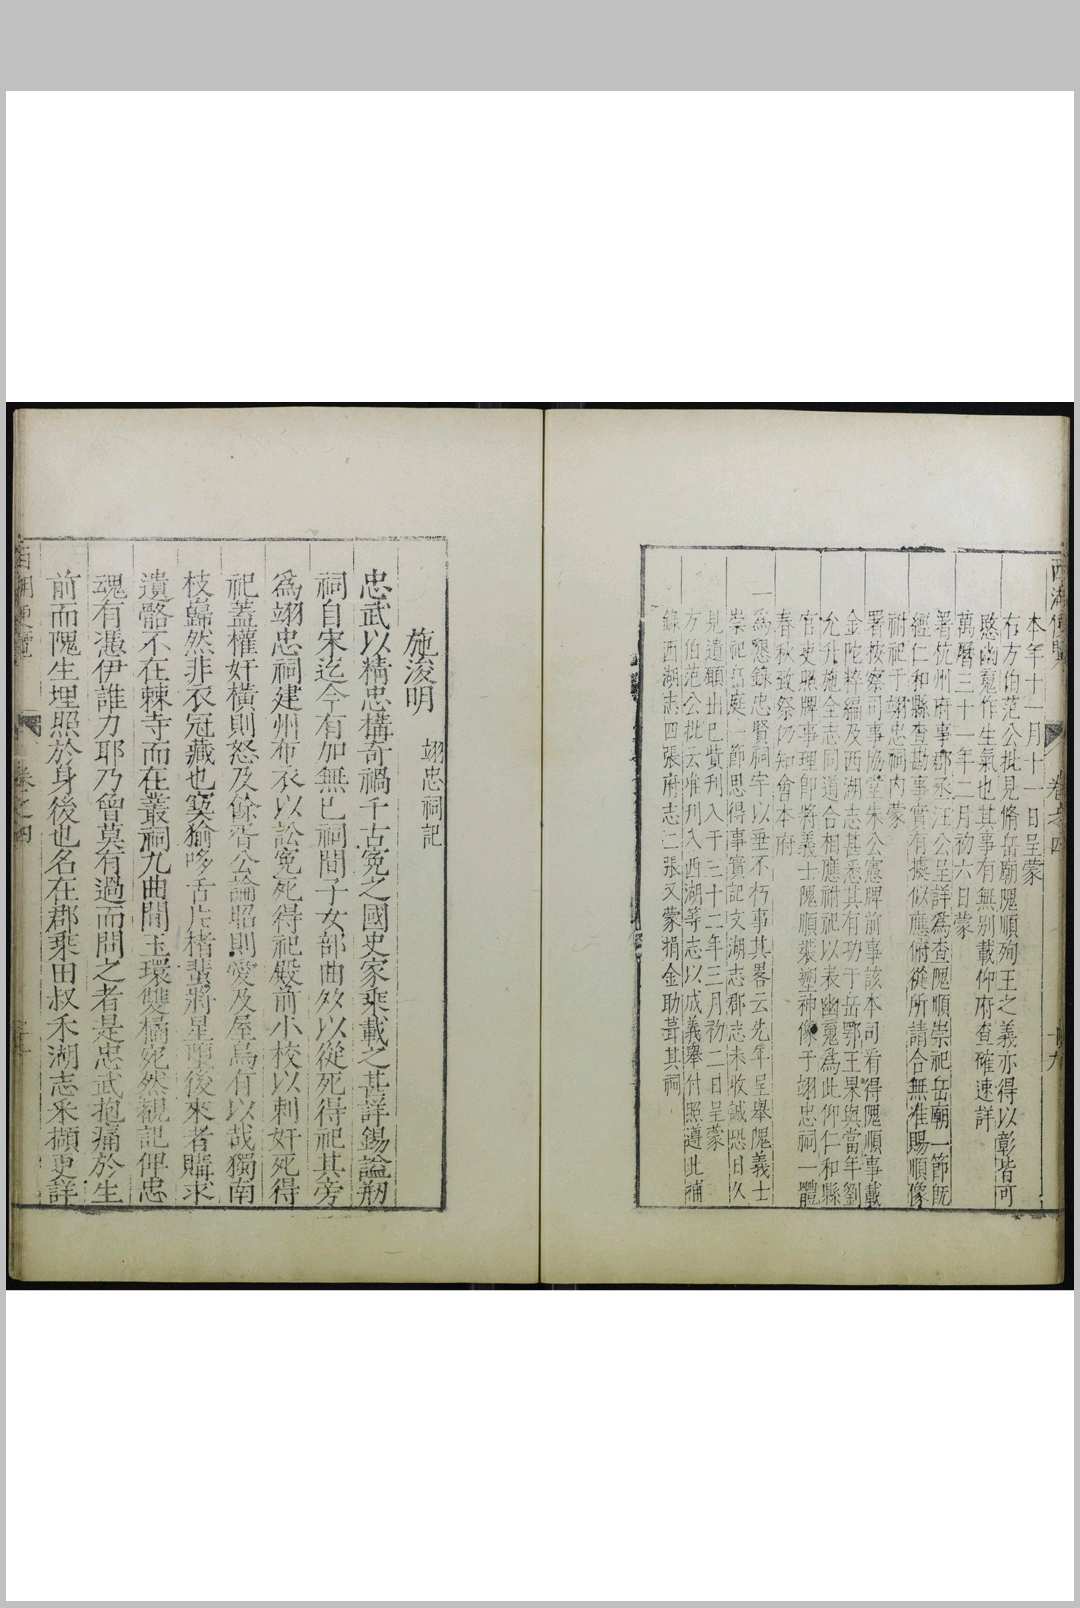 西湖便覽 卷之四 十九
本年十一月十一日呈蒙
右方伯范公批見脩岳廟隗順殉王之義亦得以彰皆可
愍幽冤作生氣也其事有無別載仰府查確速詳
萬曆三十一年二月初六日蒙
署杭州府事郡丞汪公呈詳爲查隗順崇祀岳廟一節旣
經仁和縣查勘事實有據似應俯從所請合無准賜順像
祔祀于翊忠祠內蒙
署按察司事協堂朱公憲牌前事該本司看得隗順事載
金陀粹編及西湖志甚悉其有功于岳鄂王果與當年劉
允升施全志同道合相應祔祀以表幽冤爲此仰仁和縣
官吏照牌事理卽將義士隗順裝塑神像于翊忠祠一體
春秋致祭仍知會本府
一爲懇錄忠賢祠宇以垂不朽事其畧云先年呈舉隗義士
崇祀岳廟一節思得事實記文湖志郡志未收誠恐日久
見遺願出已貲刊入于三十二年三月初二日呈蒙
方伯范公批云准刊入西湖等志以成義舉付照遵此補
錄西湖志四張府志二張又蒙捐金助葺其祠
翊忠祠記
施浚明
忠武以精忠構奇禍千古冤之國史家乘載之甚詳錫謚剏
祠自宋迄今有加無已祠間子女部曲咸以從死得祀其旁
爲翊忠祠建州布衣以訟冤死得祀殿前小校以刺奸死得
祀蓋權奸橫則怒及餘胥公論昭則愛及屋烏有以哉獨南
枝巋然非衣冠藏也寞猶哆舌片楮蜚將星隕後來者購求
遺骼不在棘寺而在叢祠九曲間玉環雙橘宛然親記俾忠
魂有憑伊誰力耶乃曾莫有過而問之者是忠武抱痛於生
前而隗生埋照於身後也名在郡乘田叔禾湖志采擷更詳
卷之四